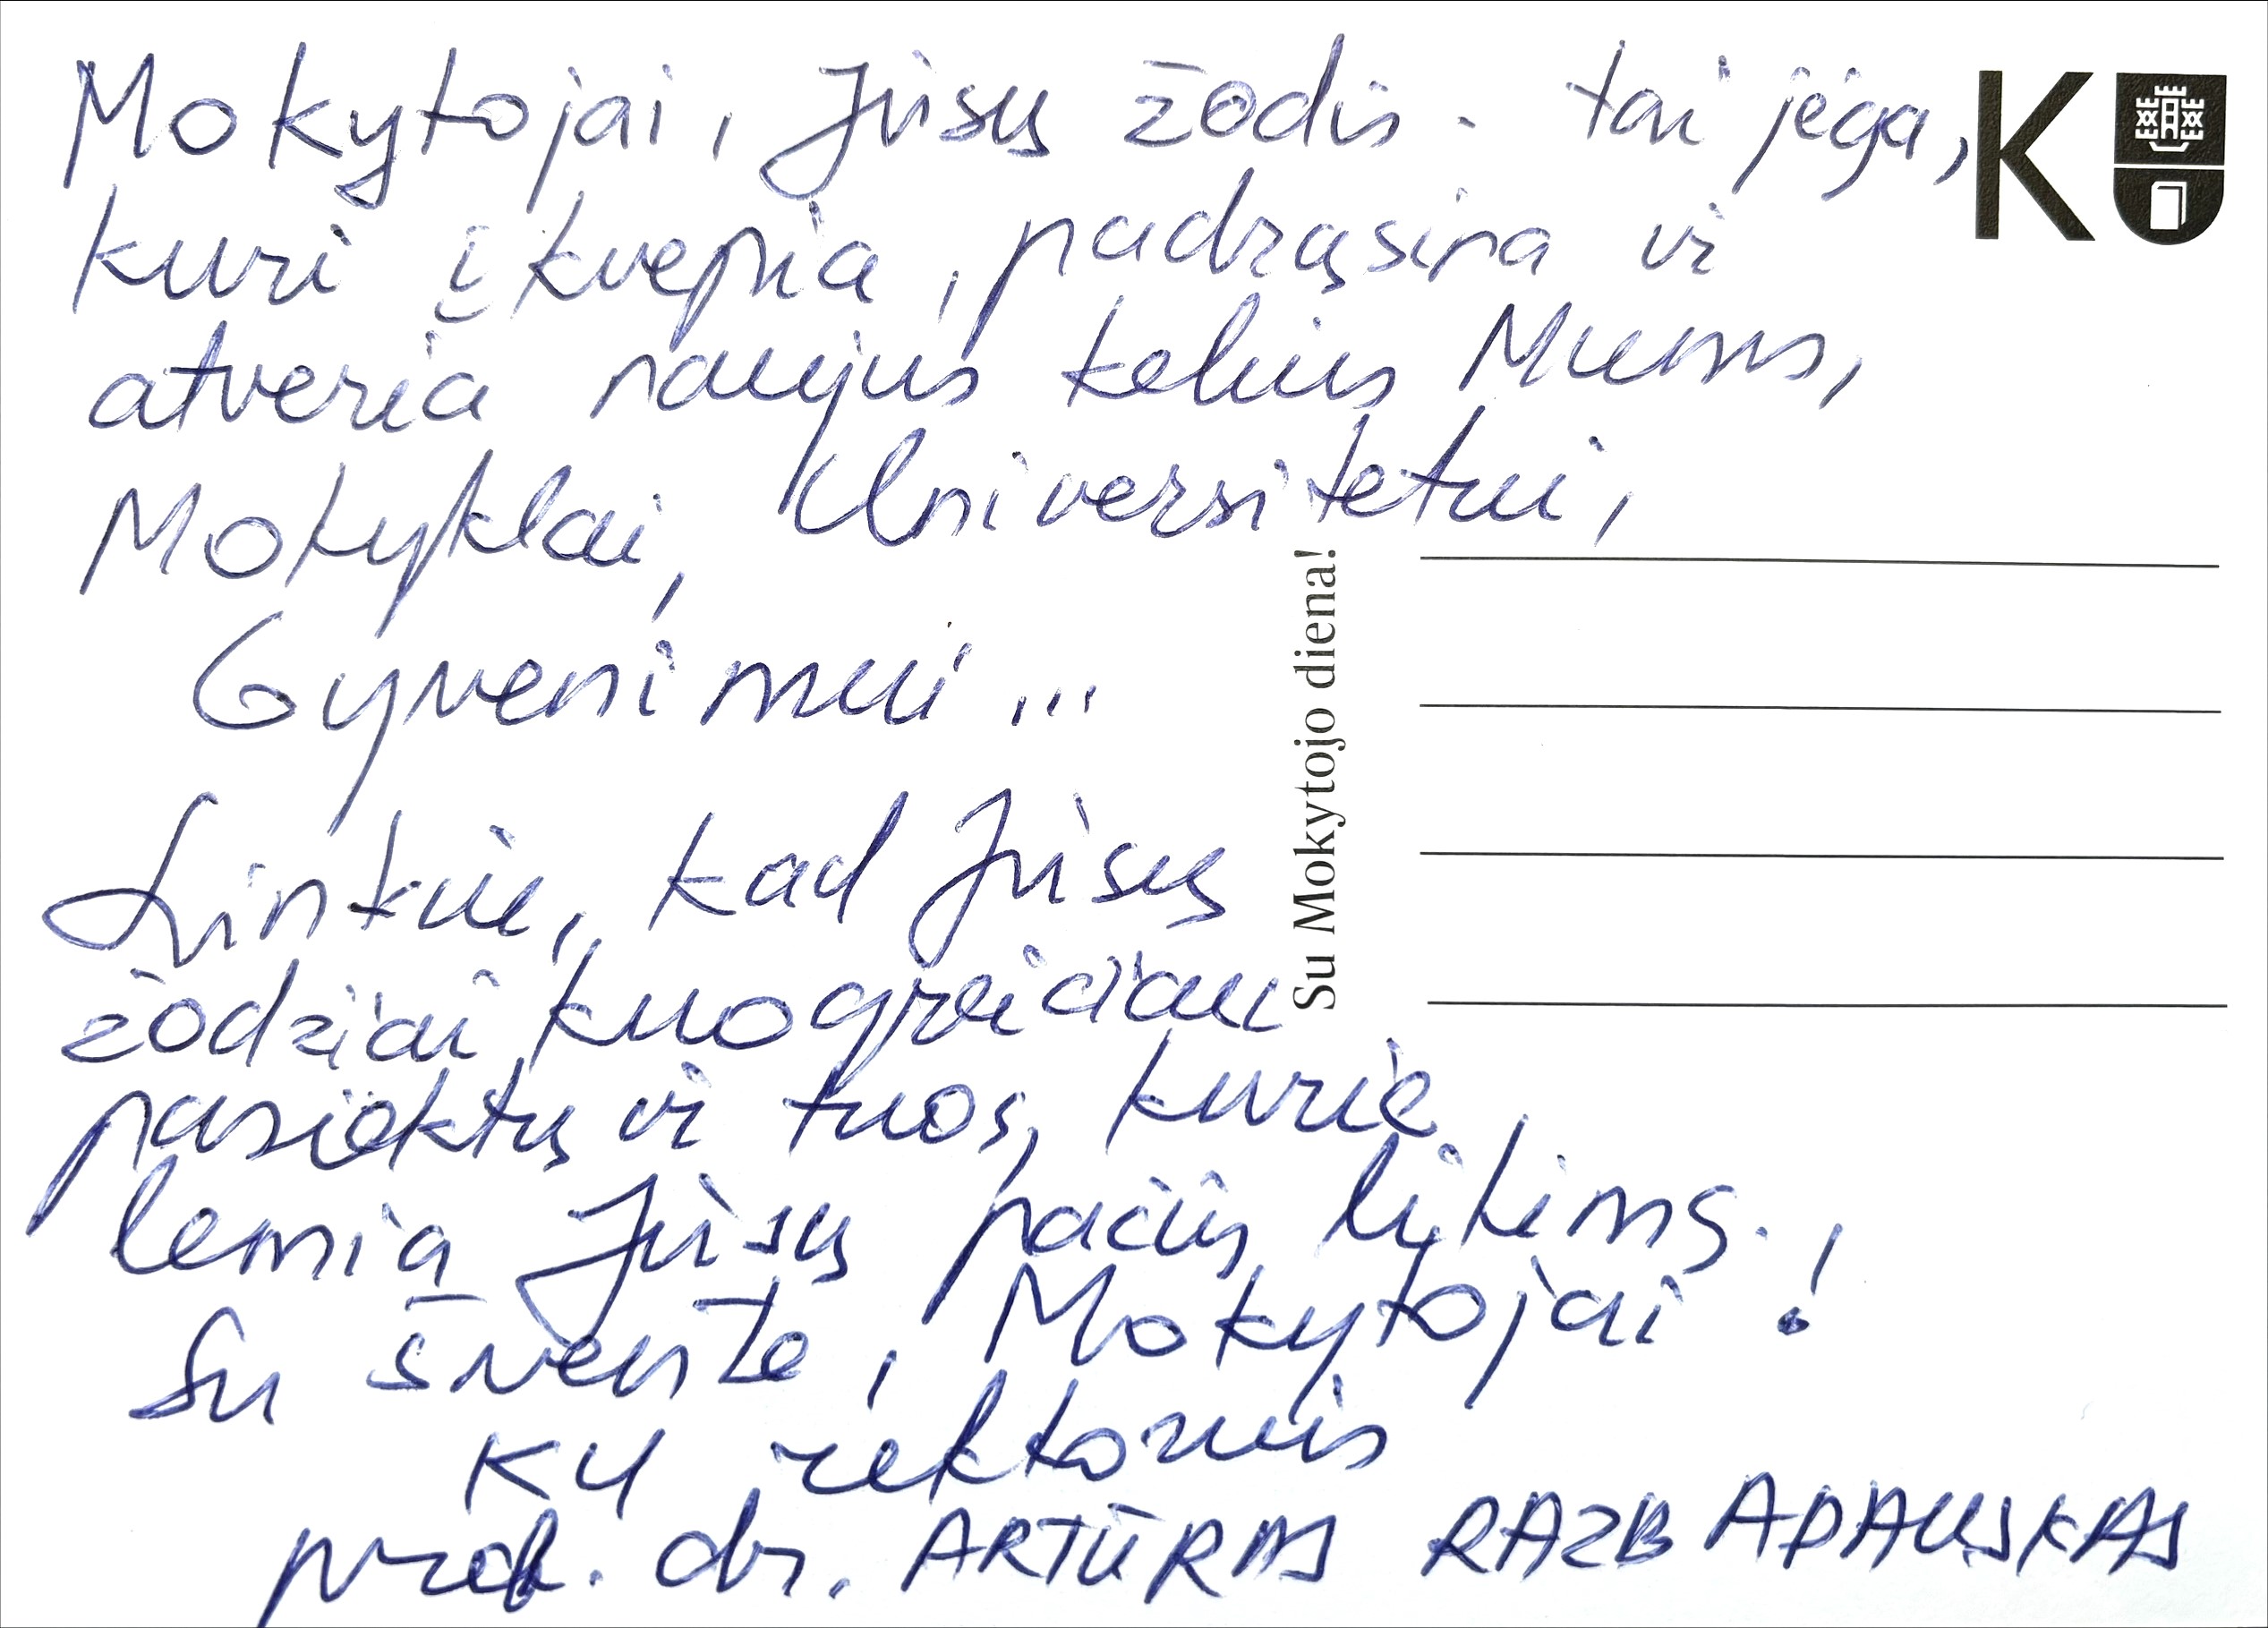 Mokytojai, Jūsų žodis - tai jėga,
kuri įkvepia, padrąsina ir
atveria naujus kelius Mums,
Mokyklai, Universitetui,
Gyvenimui...
Linkiu, kad Jūsų
žodžiai kuogreičiau
pasiektų ir tuos, kurie
lemia Jūsų pačių likimą.
Su švente, Mokytojai!
KU rektorius
prof. dr. ARTŪRAS RAZBADAUSKAS
K
Su Mokytojo diena!